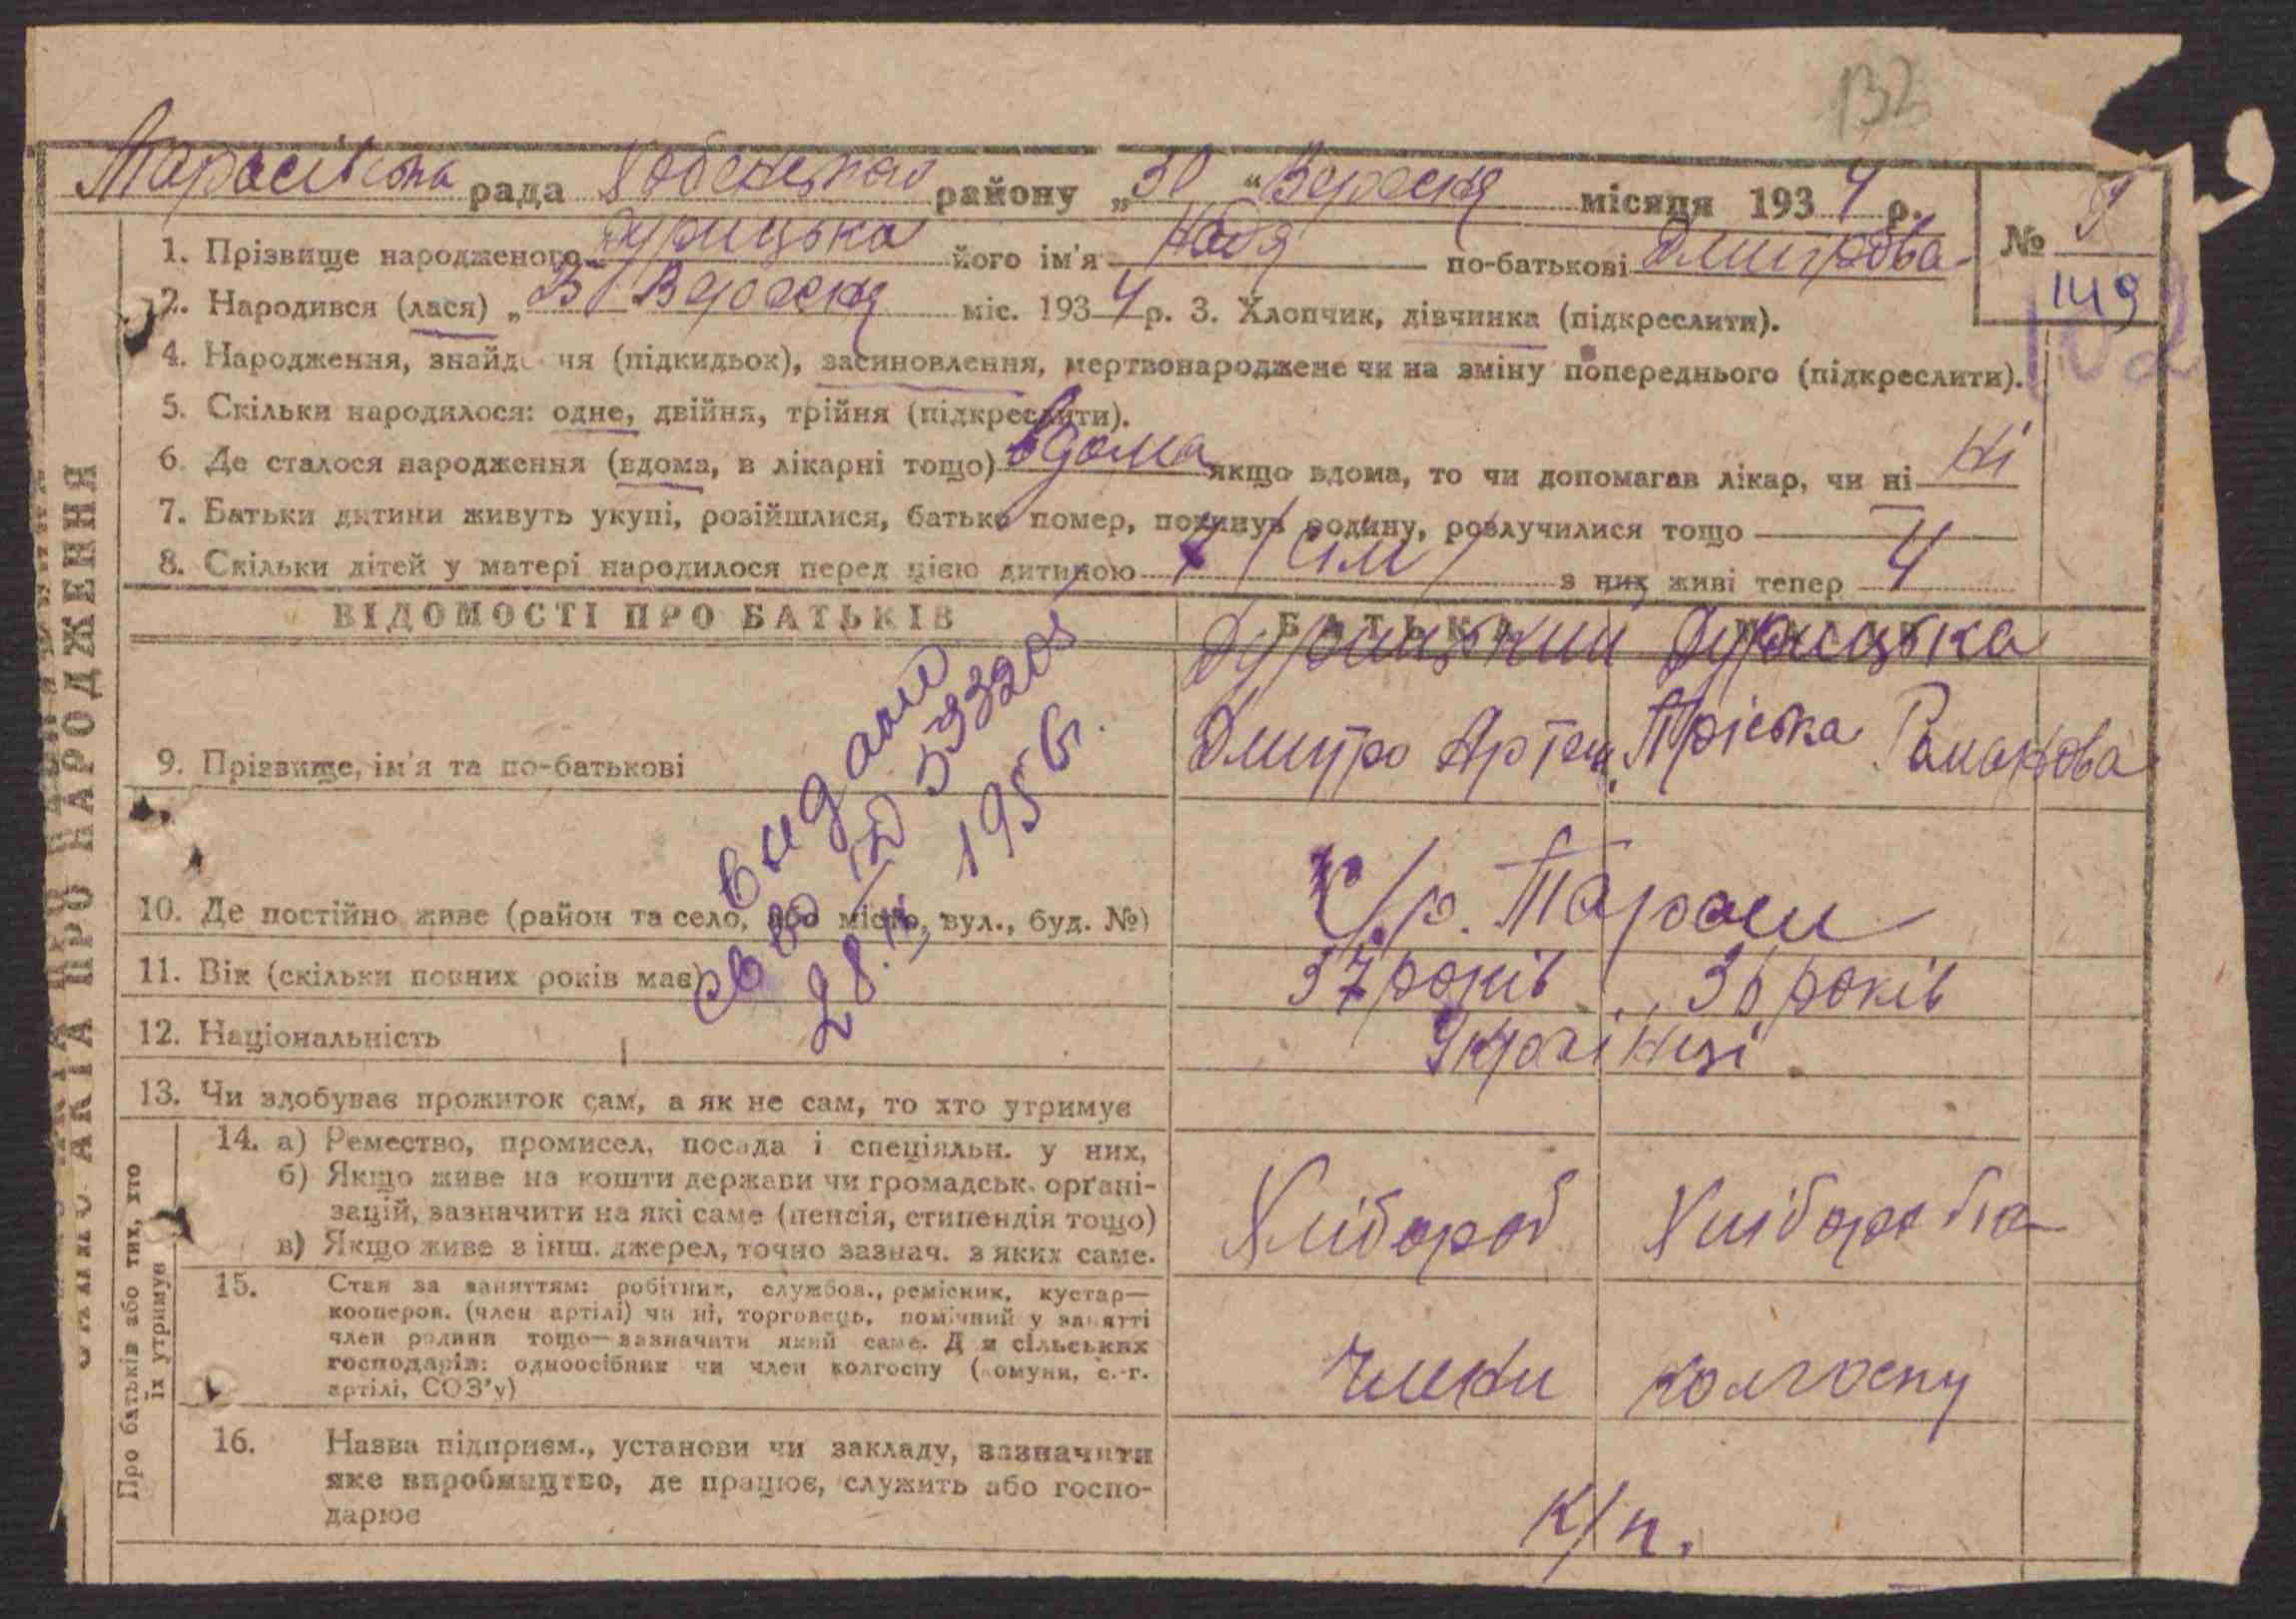 132
Тарасівська рада Хабенського району „30“ Вересня місяця 1934 р.
№ 9
149
1. Прізвище народженого Дурицька його ім'я Надя по-батькові Дмитрова
2. Народився (лася) „ Вересня міс. 1934 р. 3. Хлопчик, дівчинка (підкреслити).
4. Народження, знайдення (підкидьок), засиновлення, мертвонароджене чи на зміну попереднього (підкреслити).
5. Скільки народилося: одне, двійня, трійня (підкреслити).
6. Де сталося народження (вдома, в лікарні тощо) вдома якщо вдома, то чи допомагав лікар, чи ні Ні
7. Батьки дитини живуть укупі, розійшлися, батько помер, покинув родину, розлучилися тощо
8. Скільки дітей у матері народилося перед цією дитиною 7 /сім/ з них живі тепер 4
ВІДОМОСТІ ПРО БАТЬКІВ БАТЬКА
Дурицький Дурицька
9. Прізвище, ім'я та по-батькові Дмитро Артем. Пріська Романова
видано
28. 1956г.
10. Де постійно живе (район та село, або місто, вул., буд. №) Х/р. Тараси
11. Вік (скільки повних років має) 37 років 36 років
12. Національність Українці
13. Чи здобуває прожиток сам, а як не сам, то хто утримує
Про батьків або тих, хто їх утримує
14. а) Ремество, промисел, посада і спеціяльн. у них,
б) Якщо живе на кошти держави чи громадськ. орґані-
зацій, зазначити на які саме (пенсія, стипендія тощо)
в) Якщо живе з інш. джерел, точно зазнач. з яких саме.
Хлібороб Хліборобка
15. Стан за заняттям: робітник, службов., ремісник, кустар—
кооперов. (член артілі) чи ні, торговець, помічний у занятті
член родини тощо—зазначити який саме. Для сільських
господарів: одноосібник чи член колгоспу (комуни, с.-г.
артілі, СОЗ'у)
Члени колгоспу
16. Назва підприєм., установи чи закладу, зазначити
яке виробництво, де працює, служить або госпо-
дарює
К/п.
ПРО НАРОДЖЕННЯ